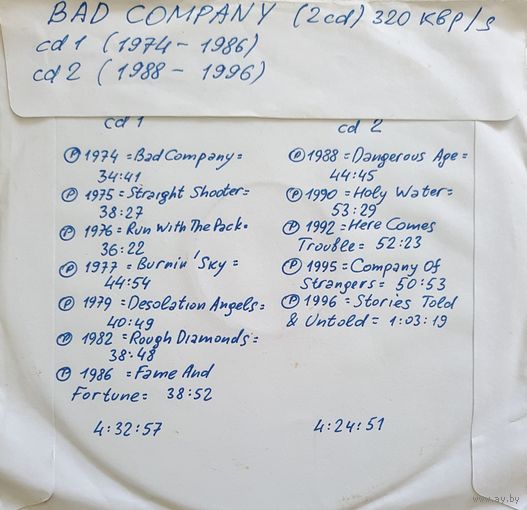 BAD COMPANY (2cd) 320 KBP/s
cd 1 (1974 - 1986)
cd 2 (1988 - 1996)
cd 1
Ⓟ 1974 = Bad Company =
34:41
Ⓟ 1975 = Straight Shooter =
38:27
Ⓟ 1976 = Run With The Pack =
36:22
Ⓟ 1977 = Burnin' Sky =
44:54
Ⓟ 1979 = Desolation Angels =
40:49
Ⓟ 1982 = Rough Diamonds =
38:48
Ⓟ 1986 = Fame And
Fortune = 38:52
4:32:57
cd 2
Ⓟ 1988 = Dangerous Age =
44:45
Ⓟ 1990 = Holy Water =
53:29
Ⓟ 1992 = Here Comes
Trouble = 52:23
Ⓟ 1995 = Company Of
Strangers = 50:53
Ⓟ 1996 = Stories Told
& Untold = 1:03:19
4:24:51
www.ay.by